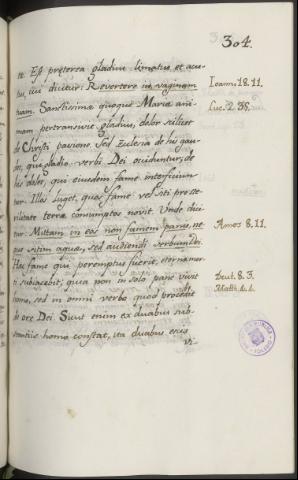 304.
te. Est præterea gladius limatus et acu-
tus, cui dicitur: Revertere in vaginam
tuam. Sanctissimæ quoque Mariæ ani-
mam pertransivit gladius, dolor scilicet
de Christi passione. Sed Ecclesia de his gau-
det, qui gladio verbi Dei occiduntur, de
his dolet, qui ejusdem fame interficiun-
tur. Illos luget, quos fame vel siti pro ste-
rilitate terræ consumptos novit. Unde dici-
tur: Mittam in eos non famem panis, ne-
que sitim aquæ, sed audiendi verbum Dei.
Hac fame qui peremptus fuerit, æternæ mor-
ti subjacebit, quia non in solo pane vivit
homo, sed in omni verbo quod procedit
de ore Dei. Sicut enim ex duabus sub-
stantiis homo constat, ita duabus eius
vi-
Joann. 18. 11.
Luc. 2. 35.
Amos 8. 11.
Deut. 8. 3.
Matth. 4. 4.